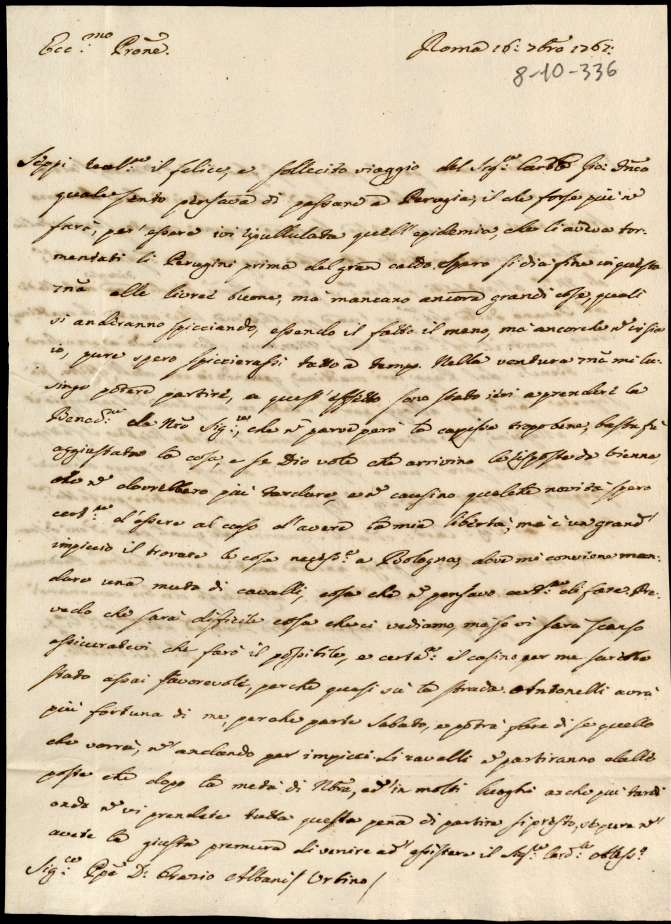 Ecc.mo Prone.
Roma 16: 7bre 1767:
8-10-336
Seppi real.te il felice, e sollecito viaggio del Sig.r Card.le Gio: Fran.co
quale sento pensava di passare a Perugia; il che forse più ñ
farà, per essere ivi ripullulata quell'epidemia, che li aveva tor-
mentati li Perugini prima del gran caldo. Spero si dia fine in questa
7na alle livree buone, ma mancano ancora grandi cose, quali
si anderanno spicciando, essendo il fatto il meno, ma ancorche ñ vi sia
io, pure spero spiccierassi tutto a tempo. Nella ventura 7na mi lu-
singo potere partire, a quest'effetto sono stato ieri a prendere la
Bened.ne da Nro Sig.re, che ñ parve però la capisse troppo bene; basta fù
aggiustata la cosa, e se Dio vole che arrivino le risposte da Vienna,
che ñ dovrebbero più tardare, e ñ causino qualche novità spero
cert.te d'essere al caso d'avere la mia libertà; ma è un grand'
impiccio il trovare le cose necess.e a Bologna, dove mi conviene man-
dare una muta di cavalli, cosa che ñ pensavo cert.te di fare. Pre-
vedo che sarà difficile cosa che ci vediamo, ma se vi sarà scanso
assicuratevi che farò il possibile, e certa.te il casino per me sarebbe
stato assai favorevole, perche quasi sù la strada. Antonelli avrà
più fortuna di me, perche parte Sabato, e potrà fare di se quello
che vorrà, ñ andando per impicci. Li cavalli ñ partiranno dalle
poste che dopo la metà di Nbre, ed in molti luoghi anche più tardi
onde ñ vi prendete tutta questa pena di partire si presto, se pure ñ
avete la giusta premura di venire ad assistere il Sig.r Card.le Aless.o
Sig.r Ppe D. Orazio Albani / Urbino /